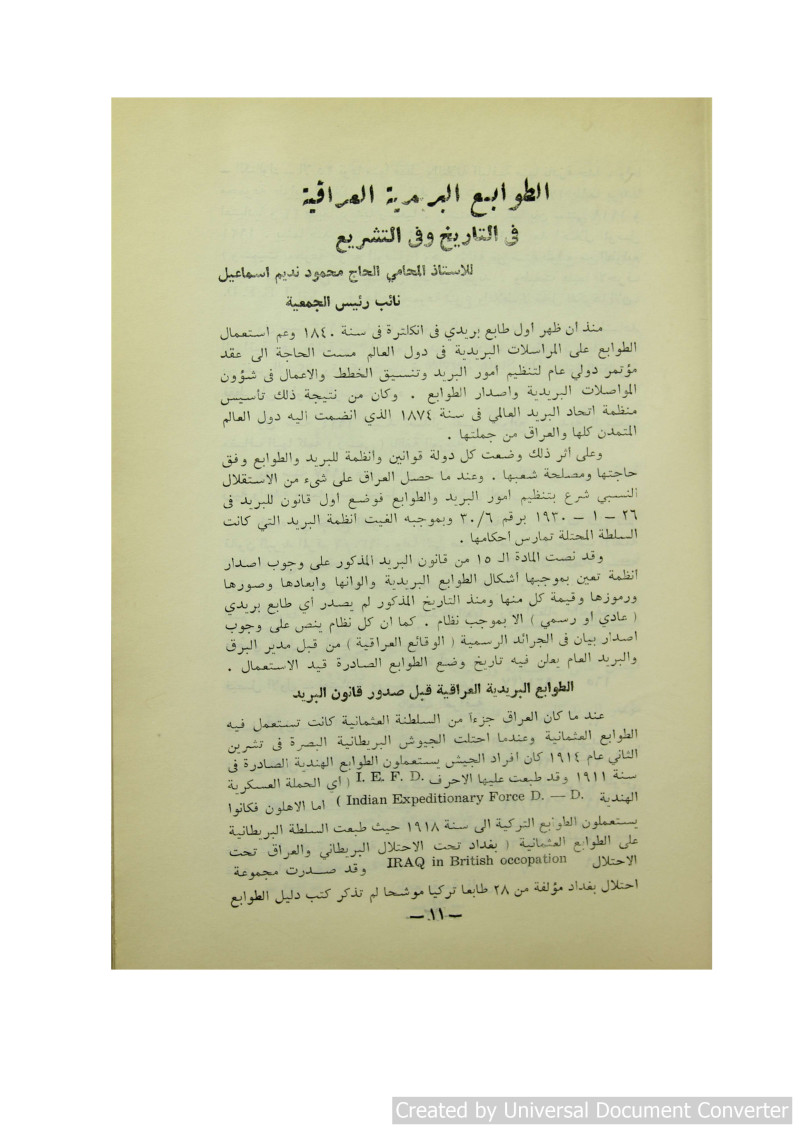 الطوابع البريدية العراقية
فى التاريخ وفى التشريع
للاستاذ المحامي الحاج محمود نديم اسماعيل
نائب رئيس الجمعية
منذ ان ظهر اول طابع بريدي فى انكلترة فى سنة ١٨٤٠ وعم استعمال
الطوابع على المراسلات البريدية فى دول العالم مست الحاجة الى عقد
مؤتمر دولي عام لتنظيم امور البريد وتنسيق الخطط والاعمال فى شؤون
المواصلات البريدية واصدار الطوابع . وكان من نتيجة ذلك تأسيس
منظمة اتحاد البريد العالمي فى سنة ١٨٧٤ الذي انضمت اليه دول العالم
المتمدن كلها والعراق من جملتها .
وعلى اثر ذلك وضعت كل دولة قوانين وانظمة للبريد والطوابع وفق
حاجتها ومصلحة شعبها . وعند ما حصل العراق على شىء من الاستقلال
النسبي شرع بتنظيم امور البريد والطوابع فوضع اول قانون للبريد فى
٢٦ – ١ – ١٩٣٠ برقم ٣٠/٦ وبموجبه الغيت انظمة البريد التي كانت
السلطة المحتلة تمارس احكامها .
وقد نصت المادة الـ ١٥ من قانون البريد المذكور على وجوب اصدار
انظمة تعين بموجبها اشكال الطوابع البريدية والوانها وابعادها وصورها
ورموزها وقيمة كل منها ومنذ التاريخ المذكور لم يصدر أي طابع بريدي
( عادي او رسمي ) الا بموجب نظام . كما ان كل نظام ينص على وجوب
اصدار بيان فى الجرائد الرسمية ( الوقائع العراقية ) من قبل مدير البرق
والبريد العام يعلن فيه تاريخ وضع الطوابع الصادرة قيد الاستعمال .
الطوابع البريدية العراقية قبل صدور قانون البريد
عند ما كان العراق جزءاً من السلطنة العثمانية كانت تستعمل فيه
الطوابع العثمانية وعندما احتلت الجيوش البريطانية البصرة فى تشرين
الثاني عام ١٩١٤ كان أفراد الجيش يستعملون الطوابع الهندية الصادرة فى
سنة ١٩١١ وقد طبعت عليها الاحرف .I. E. F. D ( أي الحملة العسكرية
الهندية .Indian Expeditionary Force D. — D ) اما الاهلون فكانوا
يستعملون الطوابع التركية الى سنة ١٩١٨ حيث طبعت السلطة البريطانية
على الطوابع العثمانية ( بغداد تحت الاحتلال البريطاني والعراق تحت
الاحتلال IRAQ in British occopation وقد صدرت مجموعة
احتلال بغداد مؤلفة من ٢٨ طابعا تركيا موشحا لم تذكر كتب دليل الطوابع
— ١١ —
Created by Universal Document Converter